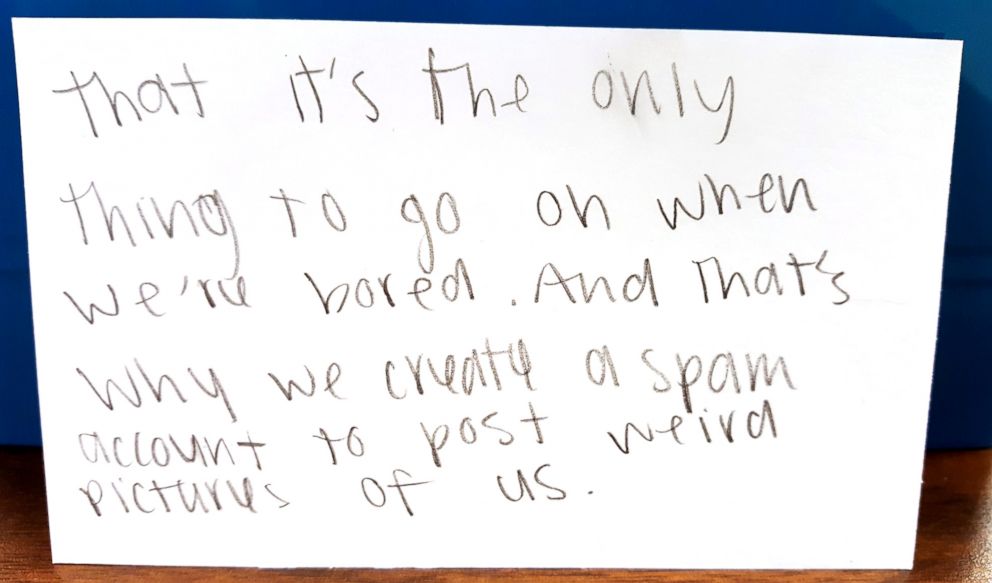 that it's the only
thing to go on when
we're bored. And that's
why we create a spam
account to post weird
pictures of us.